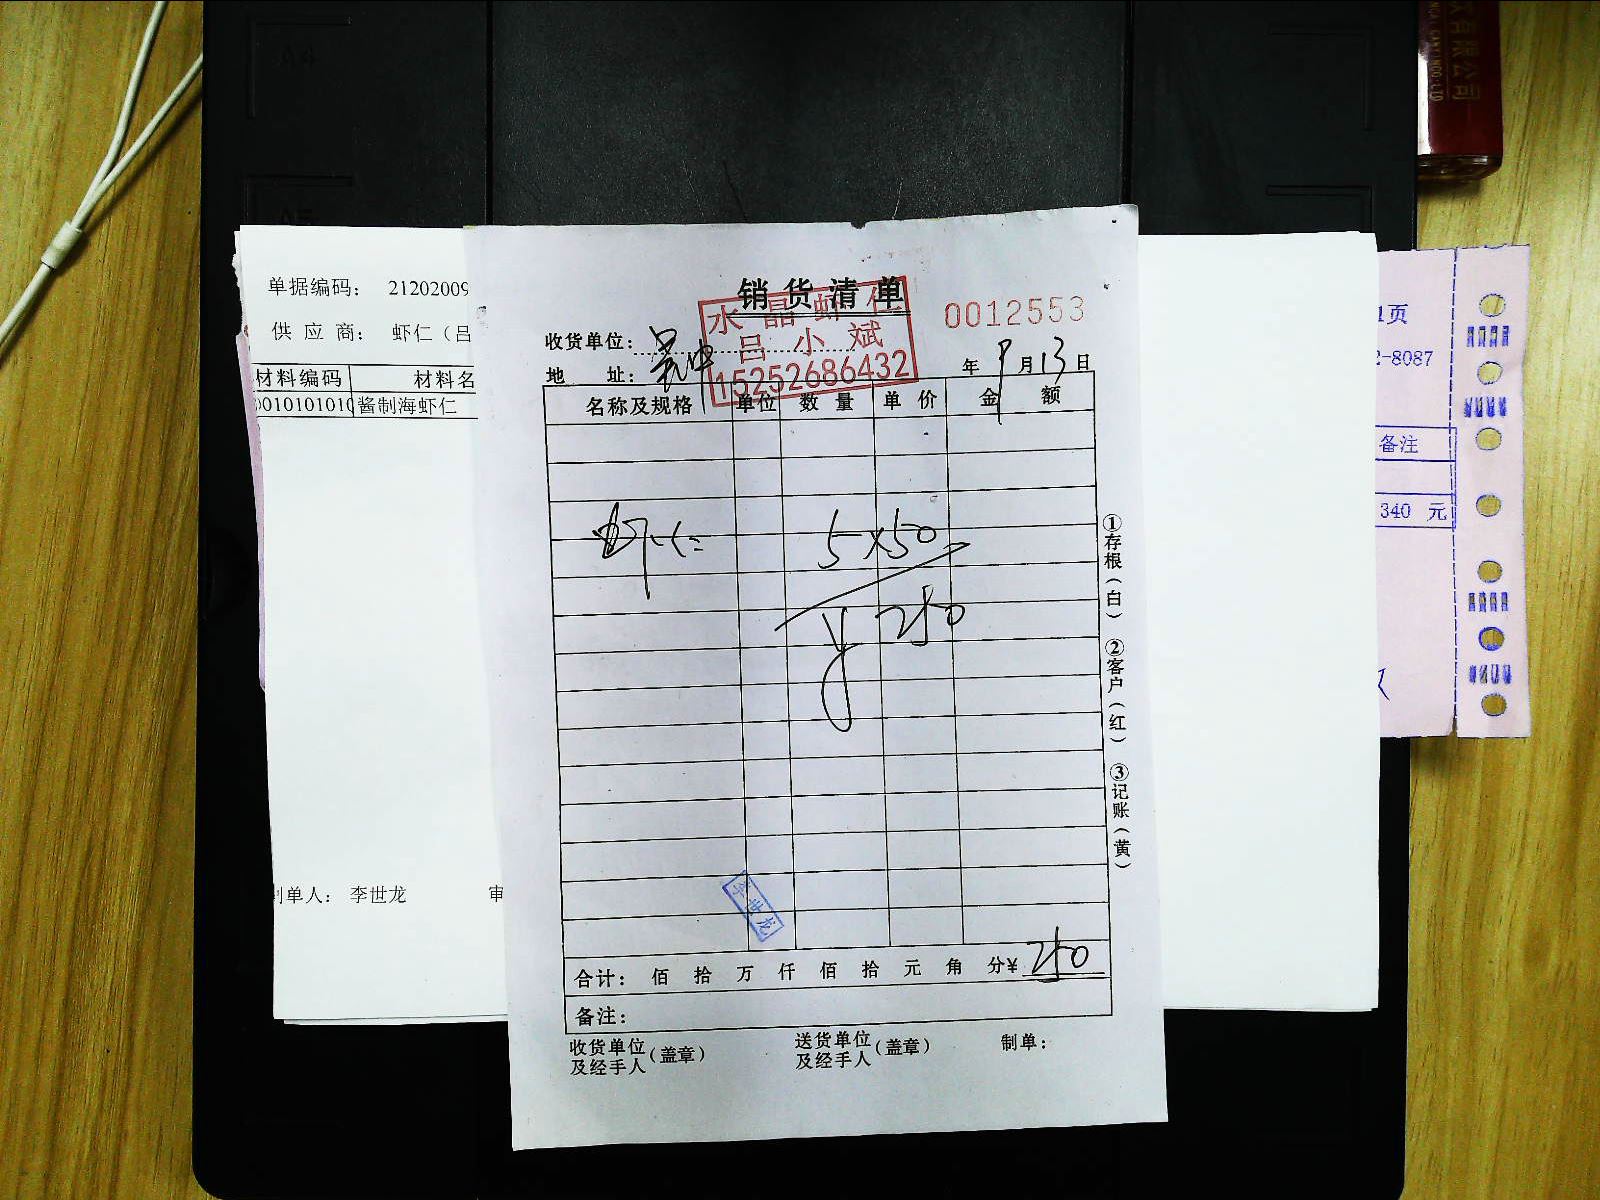 双有限公司
NCO.,LTD
单据编码: 21202009
供 应 商: 虾仁（吕
材料编码 材料名
0010101010 酱制海虾仁
制单人: 李世龙 审
销货清单
水晶虾仁
吕小斌
15252686432
0012553
收货单位:
地 址:
年 9 月 13 日
名称及规格 单位 数量 单价 金额
虾仁 5×50
¥ 250
李世龙
合计: 佰 拾 万 仟 佰 拾 元 角 分 ¥ 250
备注:
收货单位及经手人（盖章） 送货单位及经手人（盖章） 制单:
①存根（白） ②客户（红） ③记账（黄）
1页
2-8087
备注
340 元